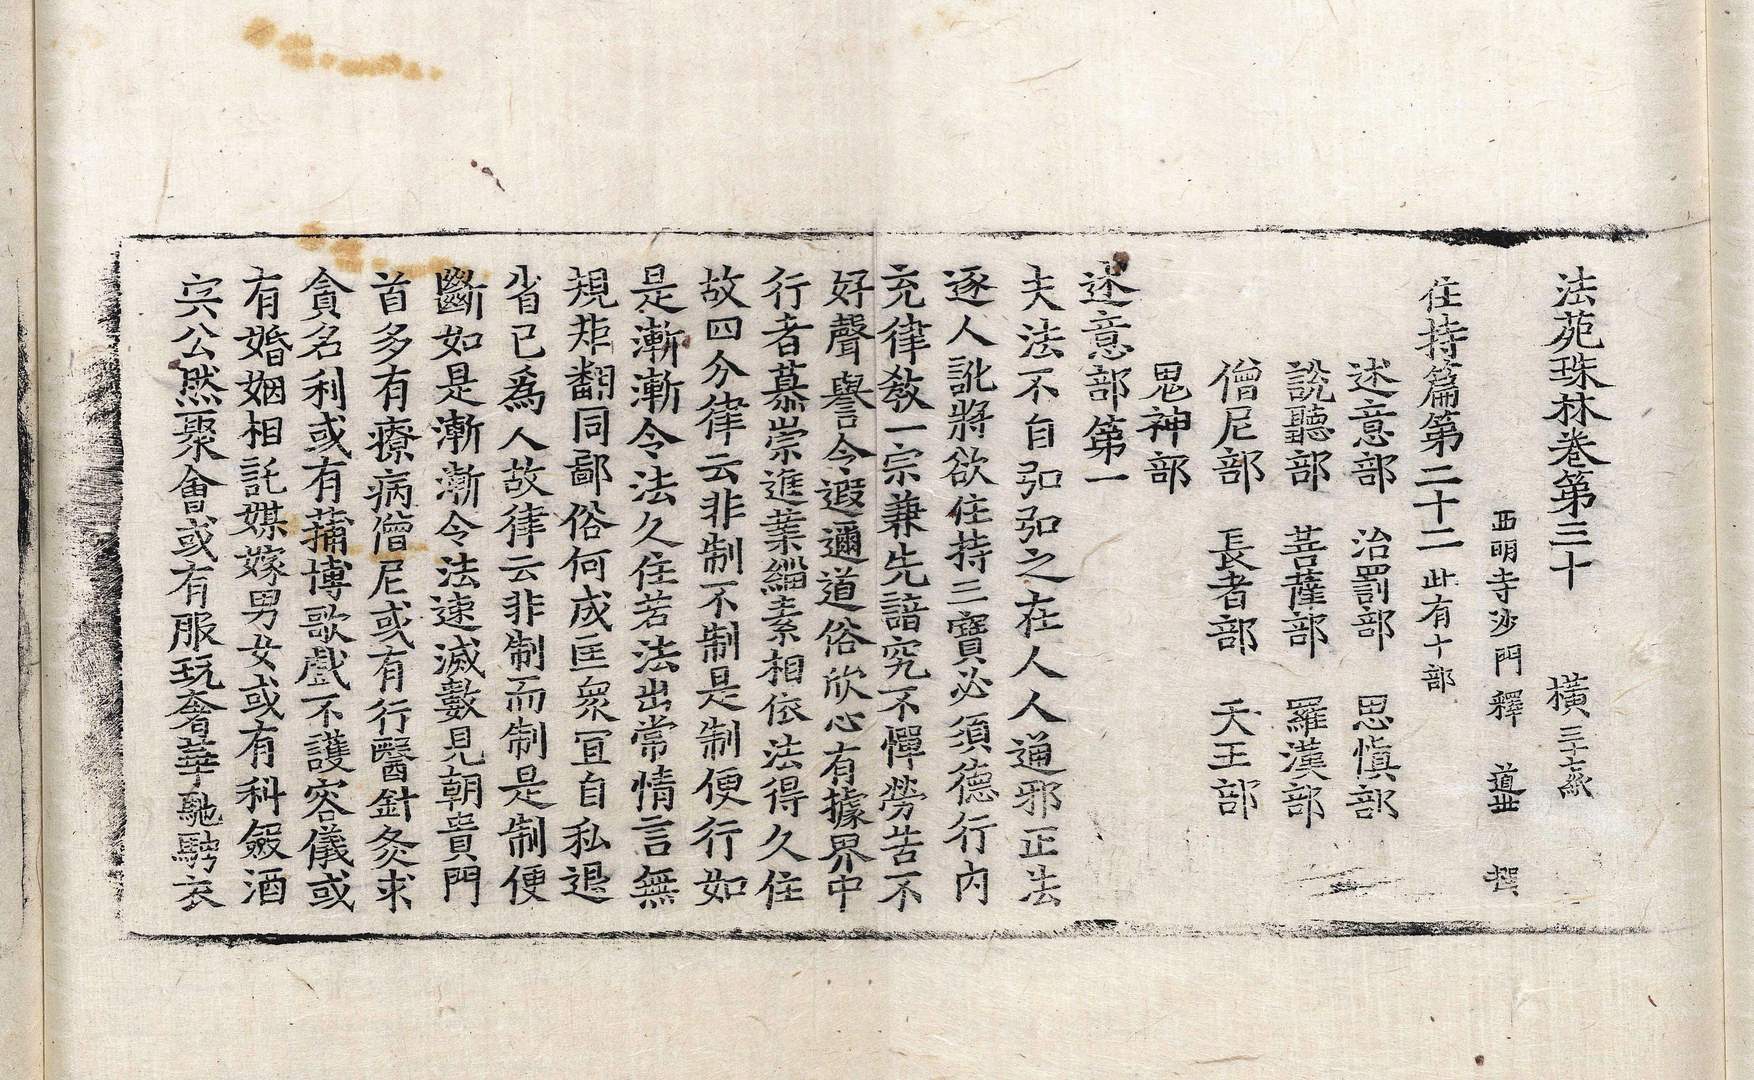 法苑珠林卷第三十 橫 三十七紙
西明寺沙門釋 道世 撰
住持篇第二十二 此有十部
述意部 治罰部 思慎部
說聽部 菩薩部 羅漢部
僧尼部 長者部 天王部
鬼神部
述意部第一
夫法不自弘弘之在人人通邪正法
逐人訛將欲住持三寶必須德行內
充律教一宗兼先諳究不憚勞苦不
好聲譽令遐邇道俗欣心有據界中
行者慕崇進業緇素相依法得久住
故四分律云非制不制是制便行如
是漸漸令法久住若法出常情言無
規矩翻同鄙俗何成匡眾宜自私退
省已為人故律云非制而制是制便
斷如是漸漸令法速滅數見朝貴門
首多有療病僧尼或有行醫針灸求
貪名利或有蒱博歌戲不護容儀或
有婚姻相託媒嫁男女或有科斂酒
宍公然聚會或有服玩奢華馳騁衣